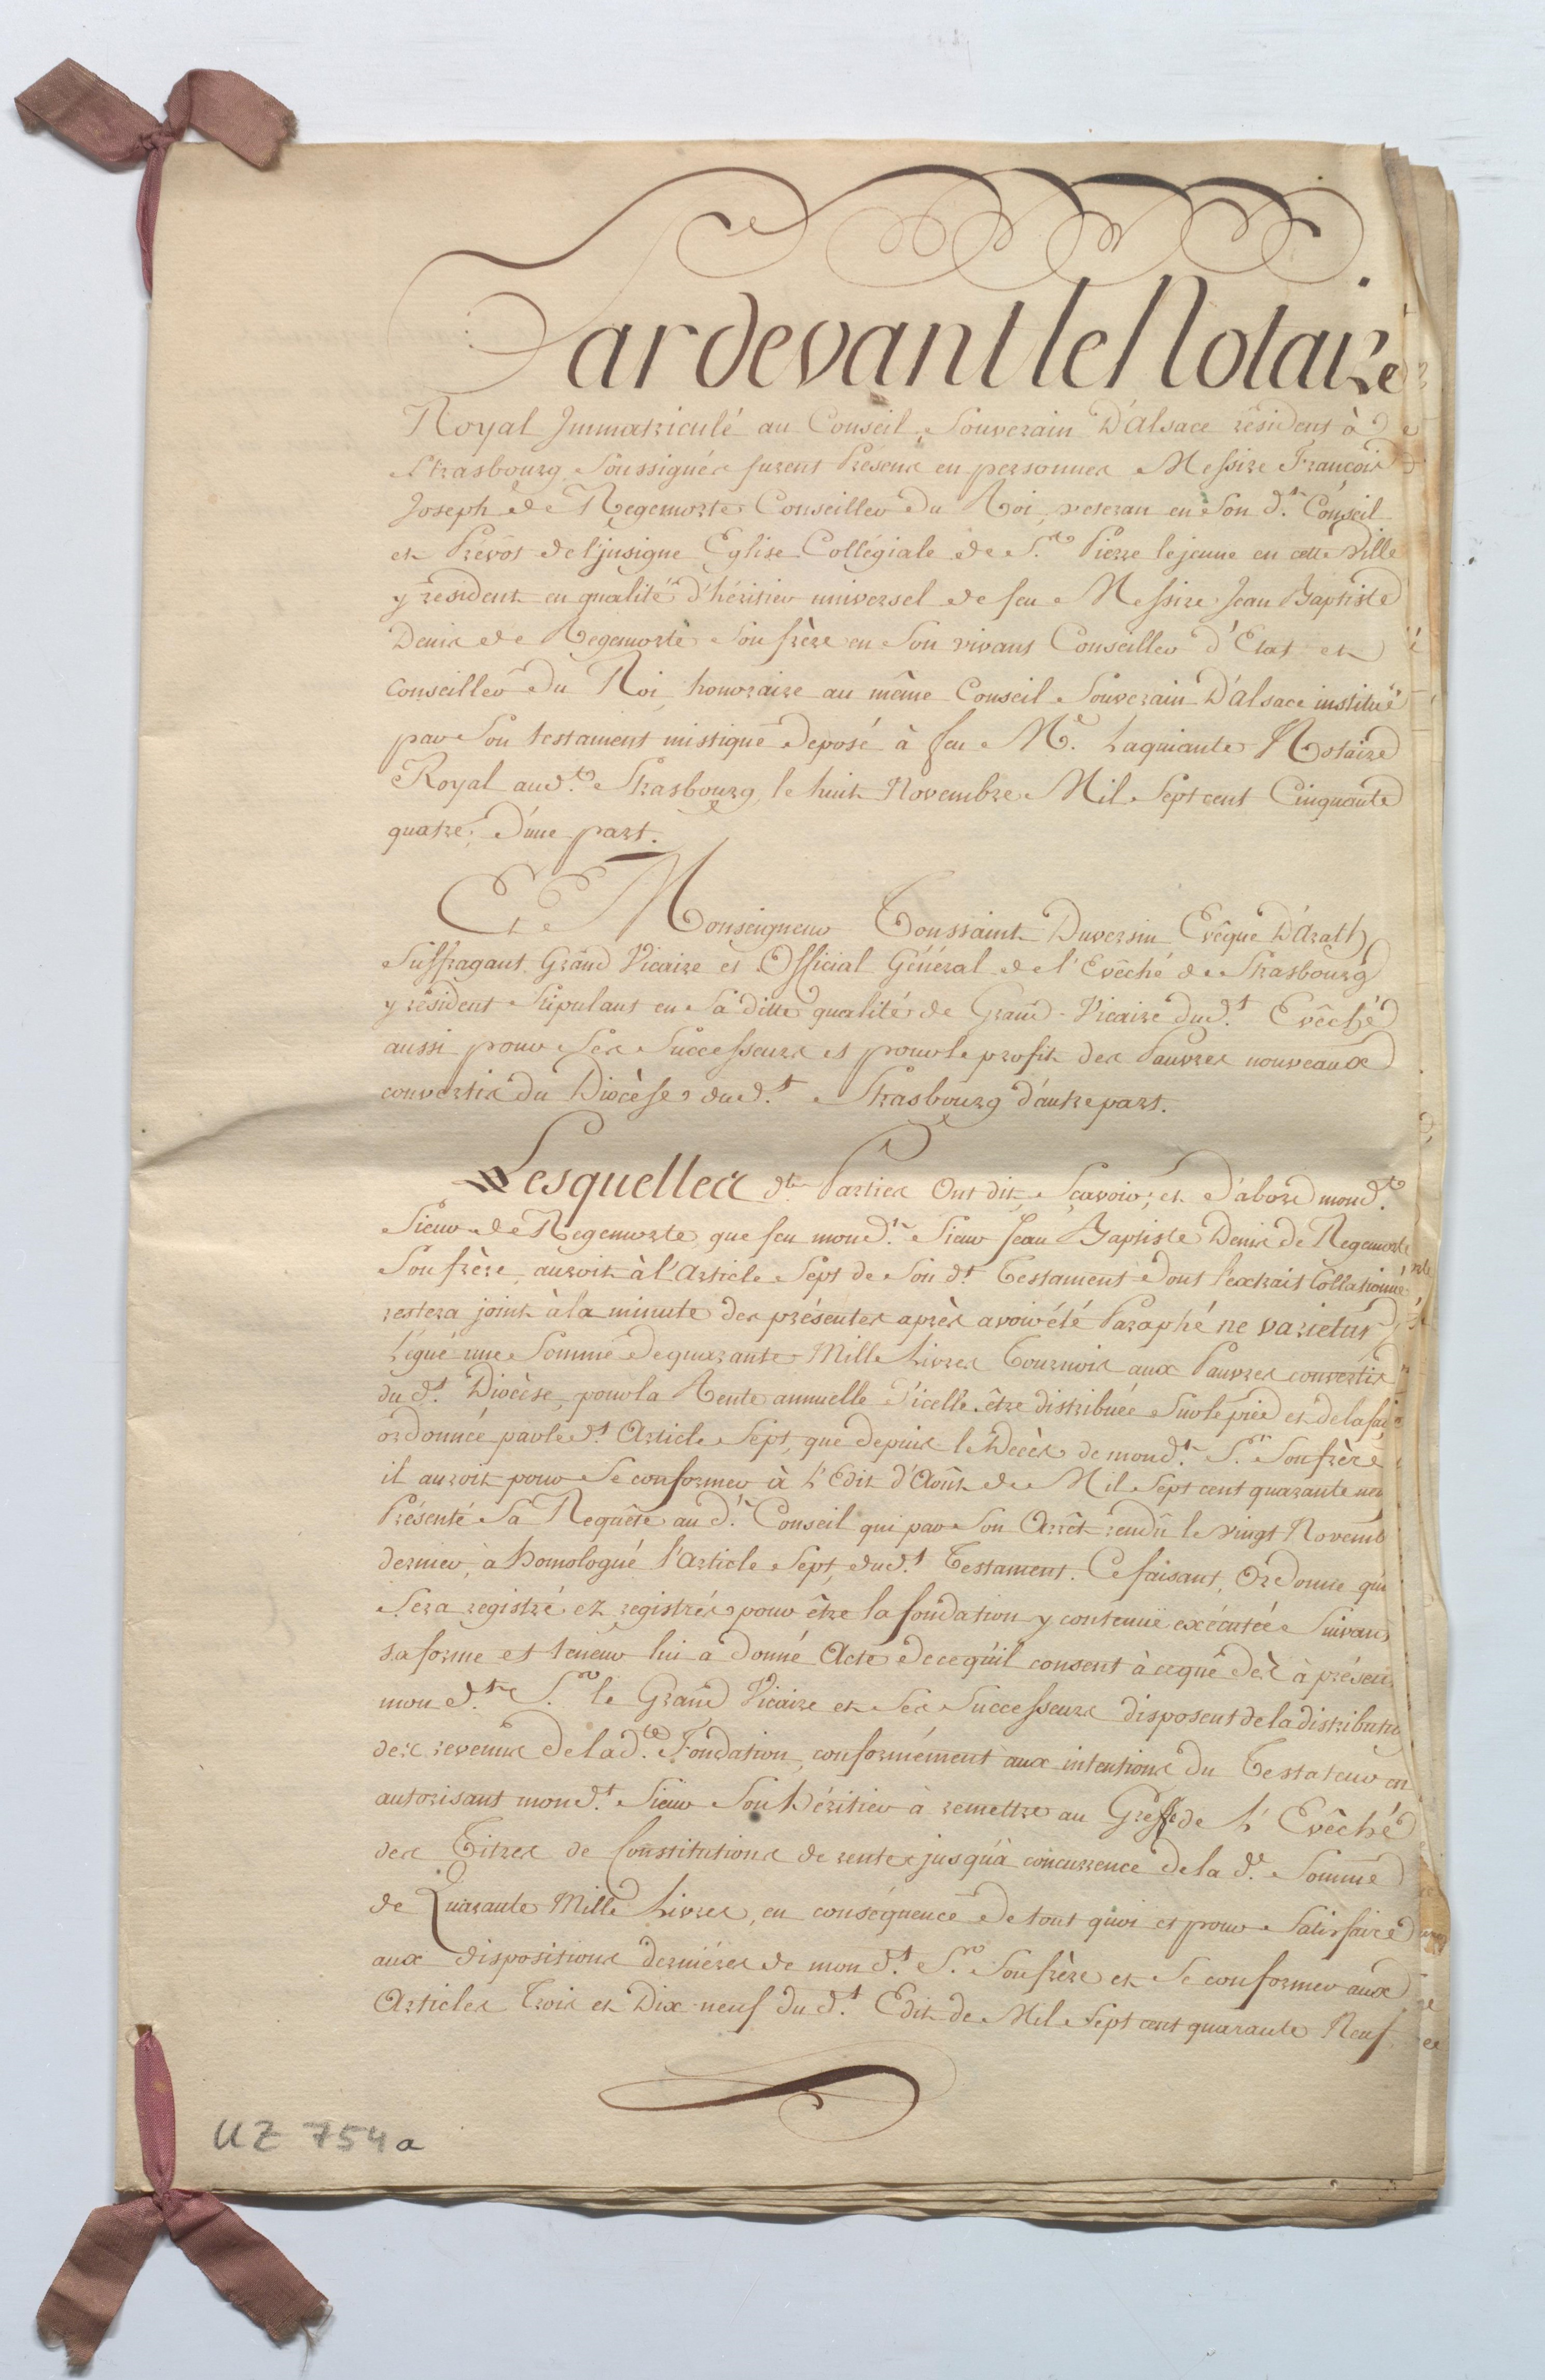 Pardevant le Notaire
Royal Immatriculé au Conseil Souverain D'Alsace résident à
Strasbourg Soussignés furent Présens en personnes Messire François
Joseph de Regemorte Conseiller Du Roi, veteran en Son d.t Conseil
et Prévôt de l'insigne Eglise Collégiale de S.t Pierre le jeune en cette Ville
y résident en qualité d'héritier universel de feu Messire Jean Baptiste
Denis de Regemorte Son frère en Son vivant Conseiller d'Etat et
Conseiller du Roi honoraire au même Conseil Souverain D'alsace institué
par Son testament mistique deposé à feu M.e Laquiante Notaire
Royal aud.t Strasbourg, le huit Novembre Mil Sept cent Cinquante
quatre, D'une part.
Et Monseigneur Toussaint Duversin Evêque D'Arath
Suffragant Grand Vicaire et Official Général de l'Evêché de Strasbourg
y résident Stipulant en Sa ditte qualité de Grand-Vicaire dud.t Evêché
aussi pour Ses Successeurs et pour le profit des Pauvres nouveaux
convertis du Diocèse dud.t Strasbourg d'autre part.
Lesquelles d.t Parties Ont dit, Sçavoir; et D'abord mond.t
Sieur de Regemorte, que feu mond.t Sieur Jean Baptiste Denis de Regemorte
Son frère, auroit à l'Article Sept de Son d.t Testament dont l'extrait Collationné
restera joint à la minute des présentes après avoir été Paraphé ne varietur
Légué une Somme de quarante Mille Livres Tournois aux Pauvres convertis
du d.t Diocèse, pour la Rente annuelle d'icelle être distribuée Sur le pied et de la
ordonnée par led.t Article Sept, que depuis le Decès de mond.t S.r Son frère
il auroit pour Se conformer à l'Edit d'Août de Mil Sept cent quarante neu
Présenté Sa Requête au d.t Conseil qui par Son Arrêt rendû le vingt Novemb
dernier, à homologué l'Article Sept, dud.t Testament. Ce faisant, Ordonne que
Sera registré ez registres pour être la fondation y contenuë exécutée Suivant
sa forme et teneur lui a Donné Acte de ce qu'il consent à ce que dès à présent
mon d.t S.r le Grand Vicaire et Ses Successeurs disposent de la distributio
des revenus de la d.te Fondation, conformément aux intentions du Testateur en
autorisant mond.t Sieur Son héritier à remettre au Greffe de l'Evêché
des Titres de Constitutions de rentes jusqu'à concurrence de la d.e Somme
de Quarante Mille Livres, en conséquence de tout quoi et pour Satisfaire
aux dispositions derniéres de mon d.t S.r Son frère et Se conformer aux
Articles Trois et Dix neuf du d.t Edit de Mil Sept cent quarante Neuf
UZ 754a